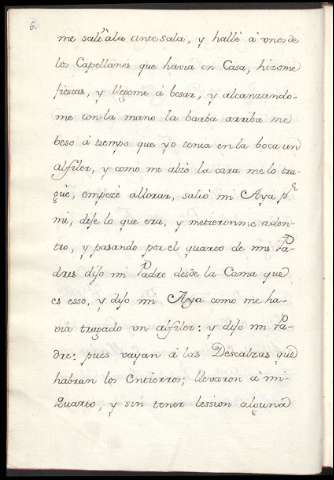 6.
me salí ala antesala, y hallé á vno de
los Capellanes que havia en Casa, hizome
fiestas, y llegome á besar, y alcanzando-
me con la mano la barba arriba me
beso á tiempo que yo tenia en la boca un
alfiler, y como me alzó la cara me lo tra-
gué, empezé allorar, salió mi Aya pr.
mi, dije lo que era, y metieronme adon-
tro, y pasando por el quarto de mis Pa-
dres dijo mi Padre desde la Cama qué
es esso, y dijo mi Aya como me ha-
via tragado un alfiler: y dijo mi Pa-
dre: pues vayan á las Descalzas que
habran los Entierros; llevaron á mi
Quarto, y sin tener lession alguna